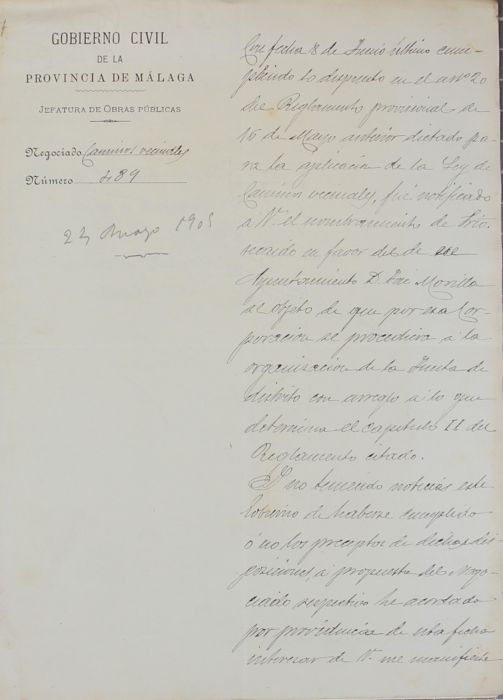 GOBIERNO CIVIL
DE LA
PROVINCIA DE MÁLAGA
JEFATURA DE OBRAS PÚBLICAS
Negociado Caminos vecinales
Número 489
Mayo 1905
Con fecha 8 de Junio último cum-
pliendo lo dispuesto en el artº 20
del Reglamento provisional de
16 de Mayo anterior dictado pa-
ra la aplicación de la Ley de
Caminos vecinales, fué notificado
a V. el nombramiento de
en favor del de ese
Ayuntamiento D. José Morilla
al objeto de que por esa Cor-
poracion se procediera á la
organizacion de la Junta de
distrito con arreglo á lo que
determina el capitulo II del
Reglamento citado.
Y no teniendo noticias este
Gobierno de haberse cumplido
ó no los preceptos de dichas dis
posiciones, á propuesta del Nego-
ciado respectivo he acordado
por providencia de esta fecha
interesar de V. me manifieste